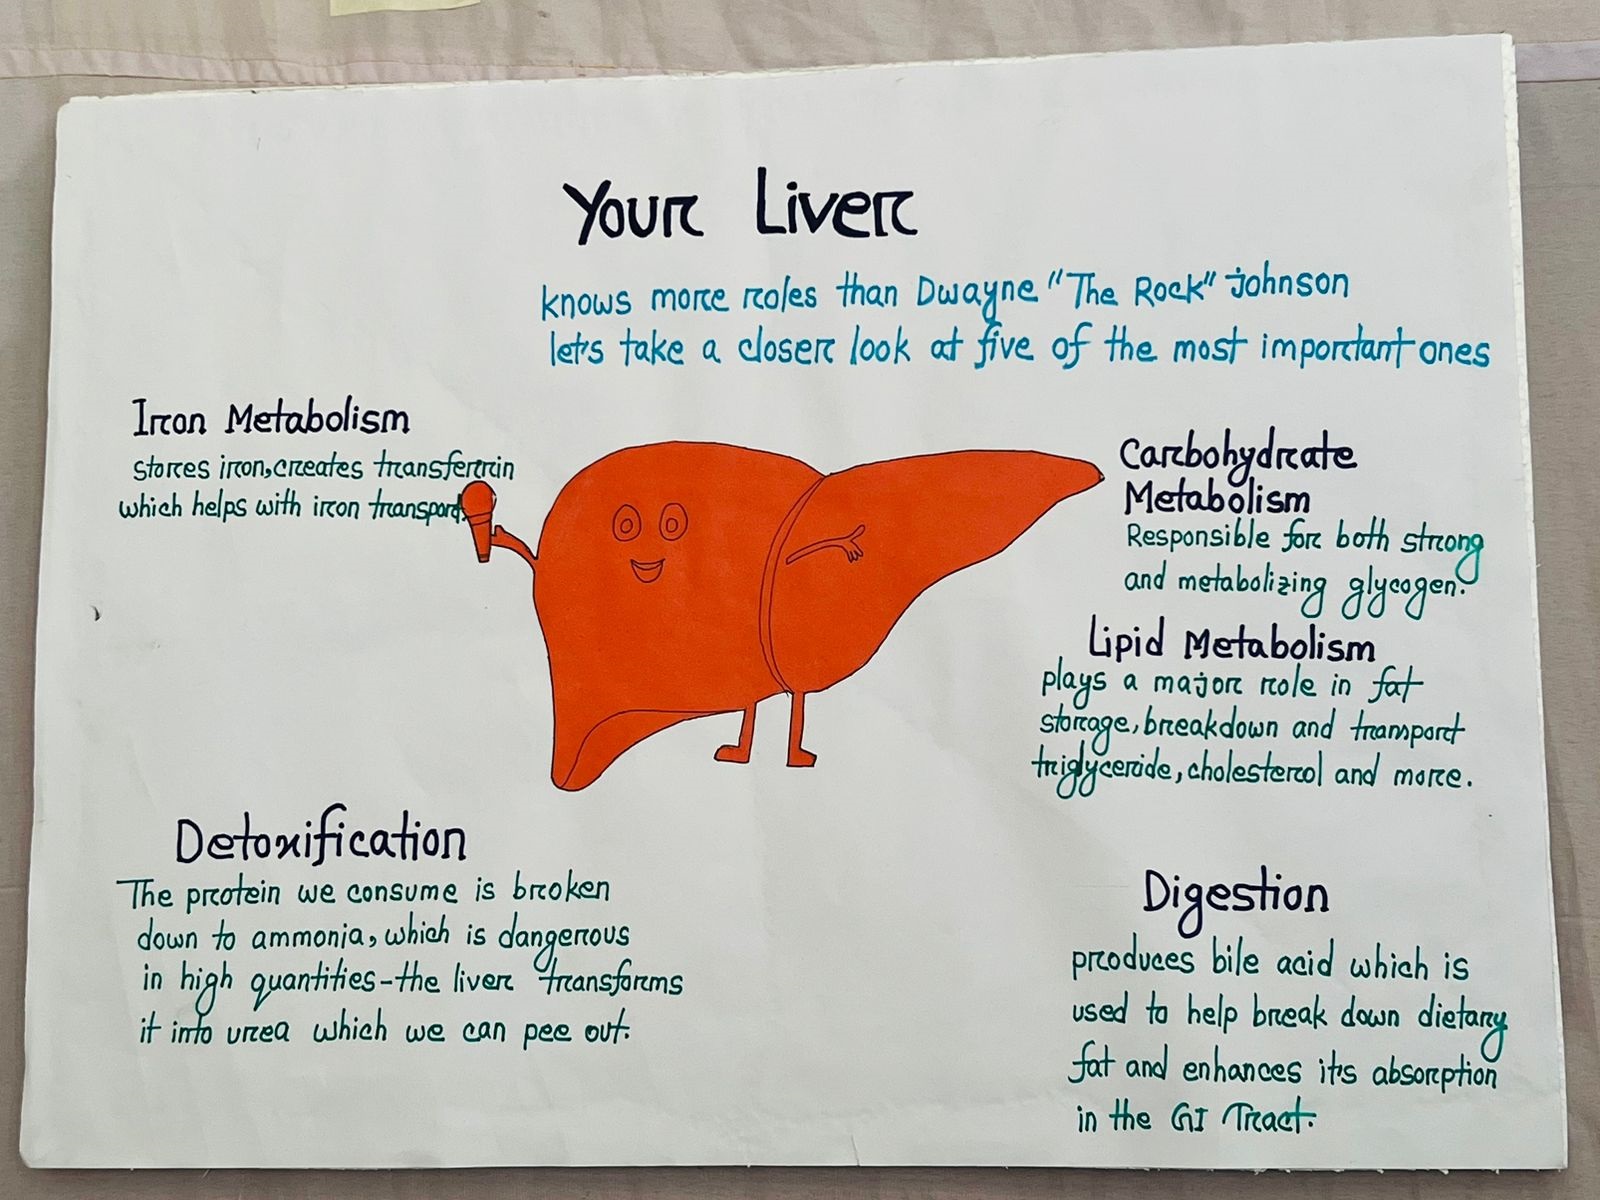 Your Liver
knows more roles than Dwayne "The Rock" Johnson
let's take a closer look at five of the most important ones
Iron Metabolism
stores iron, creates transferrin
which helps with iron transport.
Carbohydrate
Metabolism
Responsible for both strong
and metabolizing glycogen.
Lipid Metabolism
plays a major role in fat
storage, breakdown and transport
triglyceride, cholesterol and more.
Detoxification
The protein we consume is broken
down to ammonia, which is dangerous
in high quantities-the liver transforms
it into urea which we can pee out.
Digestion
produces bile acid which is
used to help break down dietary
fat and enhances it's absorption
in the GI Tract.